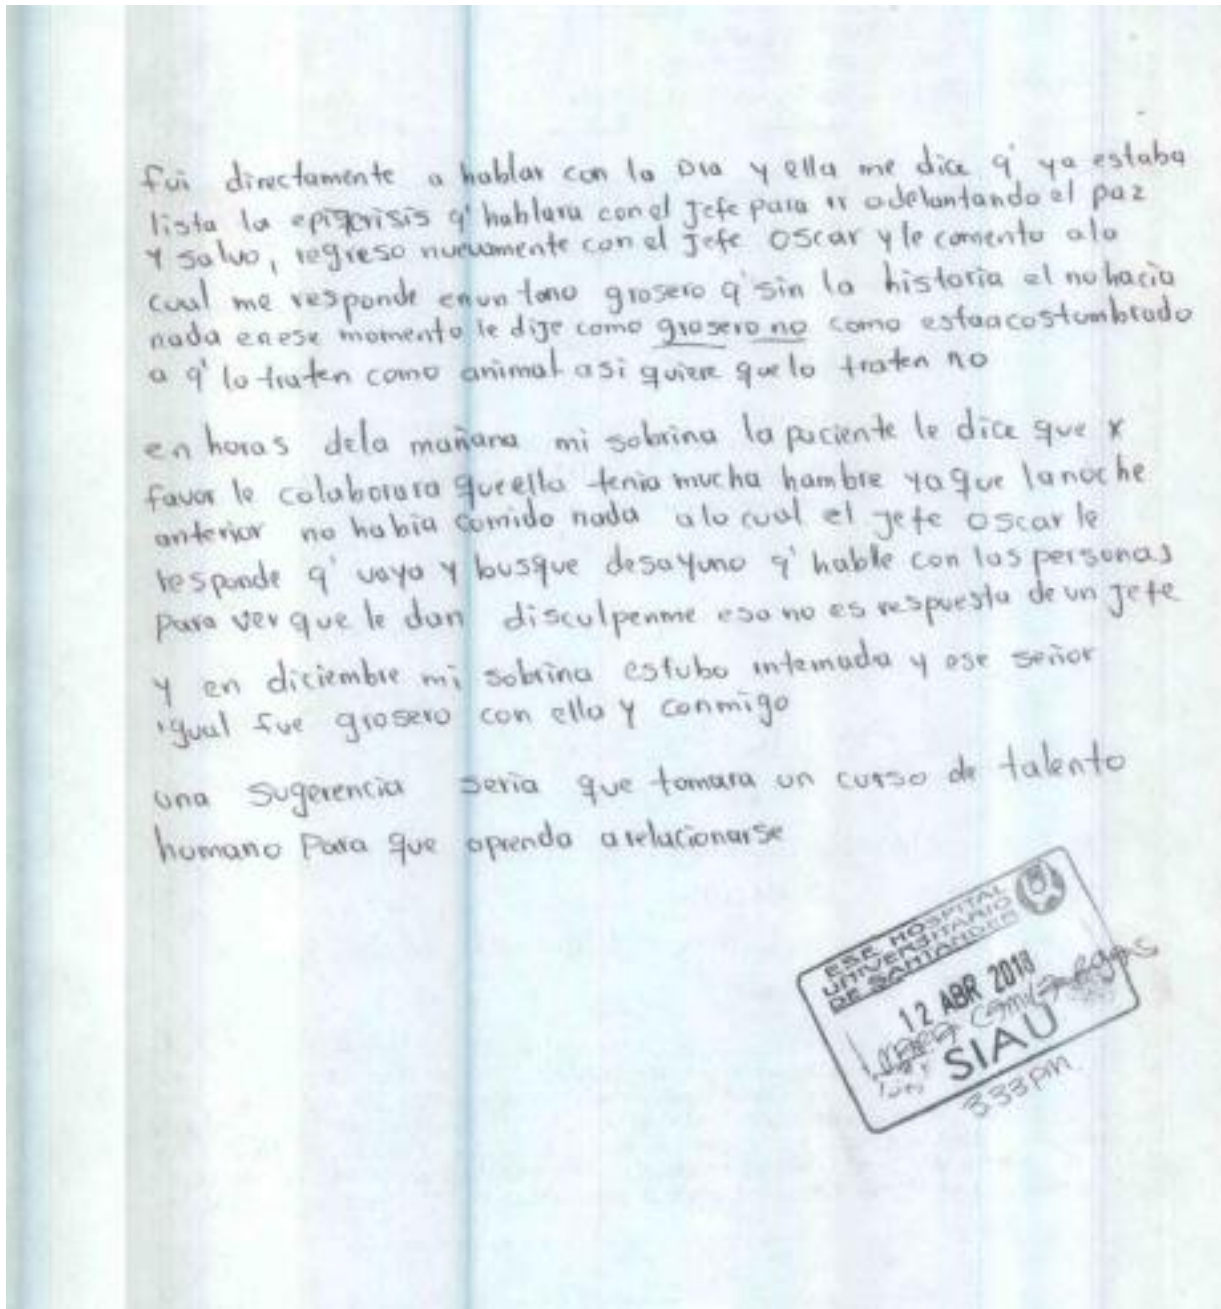 fui directamente a hablar con la Dra y ella me dice q' ya estaba
lista la epigerisis q' hablara con el Jefe para ir adelantando el paz
y salvo, regreso nuevamente con el Jefe Oscar y le comento alo
cual me responde enun tono grosero q' sin la historia el no hacia
nada enese momento le dije como grosero no como estaacostumbrado
a q' lo traten como animal asi quiere que lo traten no
en horas dela mañana mi sobrina la paciente le dice que x
favor le colaborara que ella tenia mucha hambre ya que la noche
anterior no habia comido nada alo cual el Jefe Oscar le
responde q' vaya y busque desayuno q' hable con las personas
para ver que le dan disculpenme eso no es respuesta de un Jefe
y en diciembre mi sobrina estubo internada y ese señor
igual fue grosero con ella y conmigo
una sugerencia seria que tomara un curso de talento
humano para que aprenda arelacionarse
ESE HOSPITAL
UNIVERSITARIO
DE SANTANDER
12 ABR 2018
SIAU
333 pm.